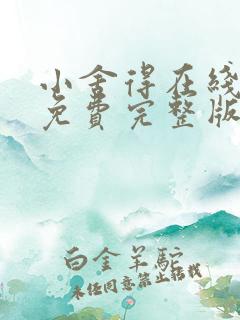 小舍得在线
免费完整版
白金羊駝
未经同意禁止转载